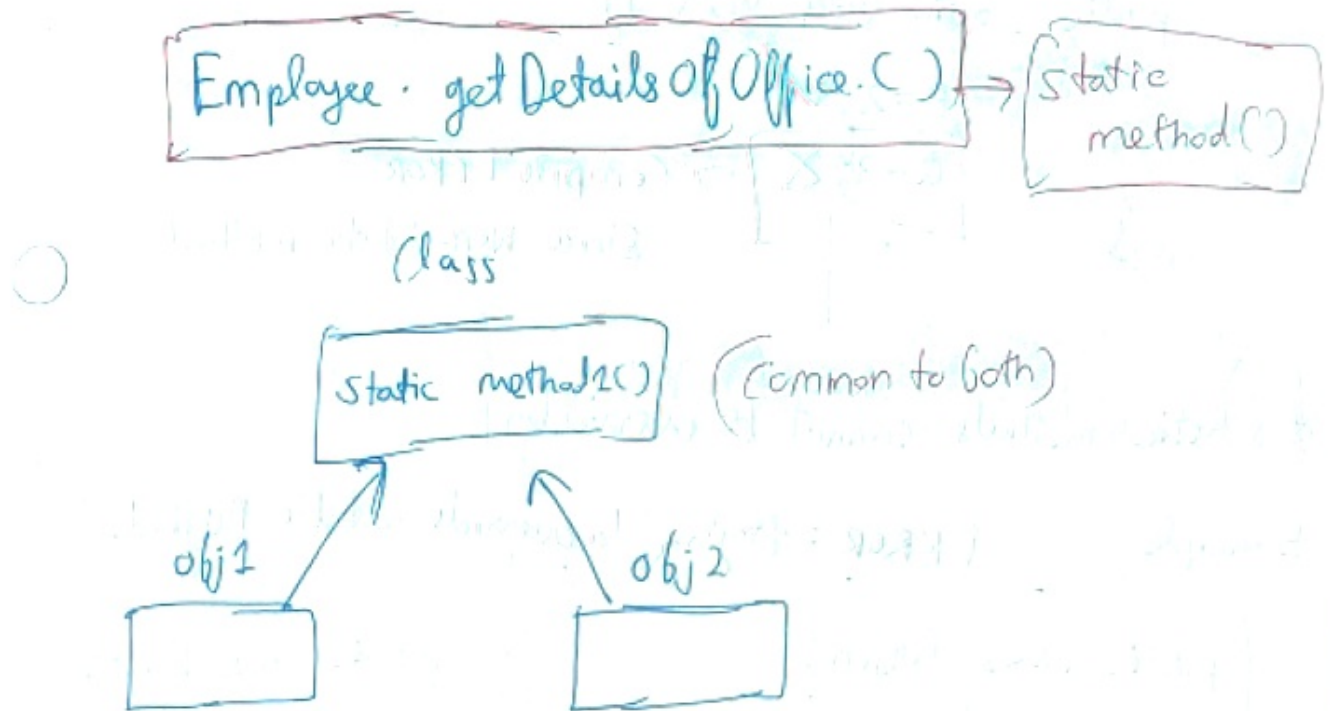 Employee. getDetailsOfOffice.()
static
method()
Class
static method1()
(Common to both)
obj1
obj2